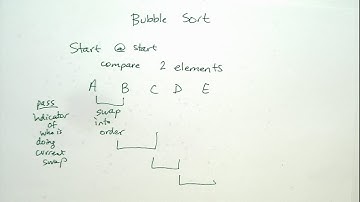 Bubble Sort
Start @ start
compare 2 elements
A B C D E
pass
indicator
of
who is
doing
current
swap
swap
into
order